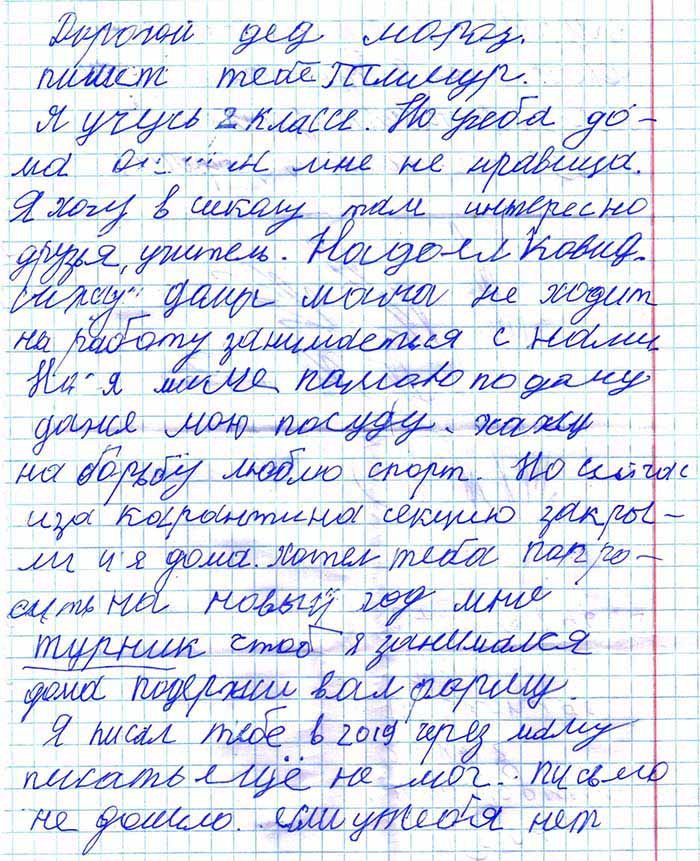 Дорогой дед мороз.
пишет тебе Тимур.
Я учусь 2 классе. Но учеба до-
ма мне не нравица.
Я хочу в школу там интересно
друзья, учитель. Надоел Ковид.
сижу дома мама не ходит
на работу занимается с нами
Но я маме памагаю по даму
даже мою посуду. хажу
на борьбу люблю спорт. Но сейчас
иза карантина секцию закры-
ли и я дома. хотел тебя папро-
сить на новый год мне
турник чтоб я занимался
дома подержи вал форму.
Я писал тебе в 2019 через маму
писать ещё не мог. письмо
не дошло. если у тебя нет